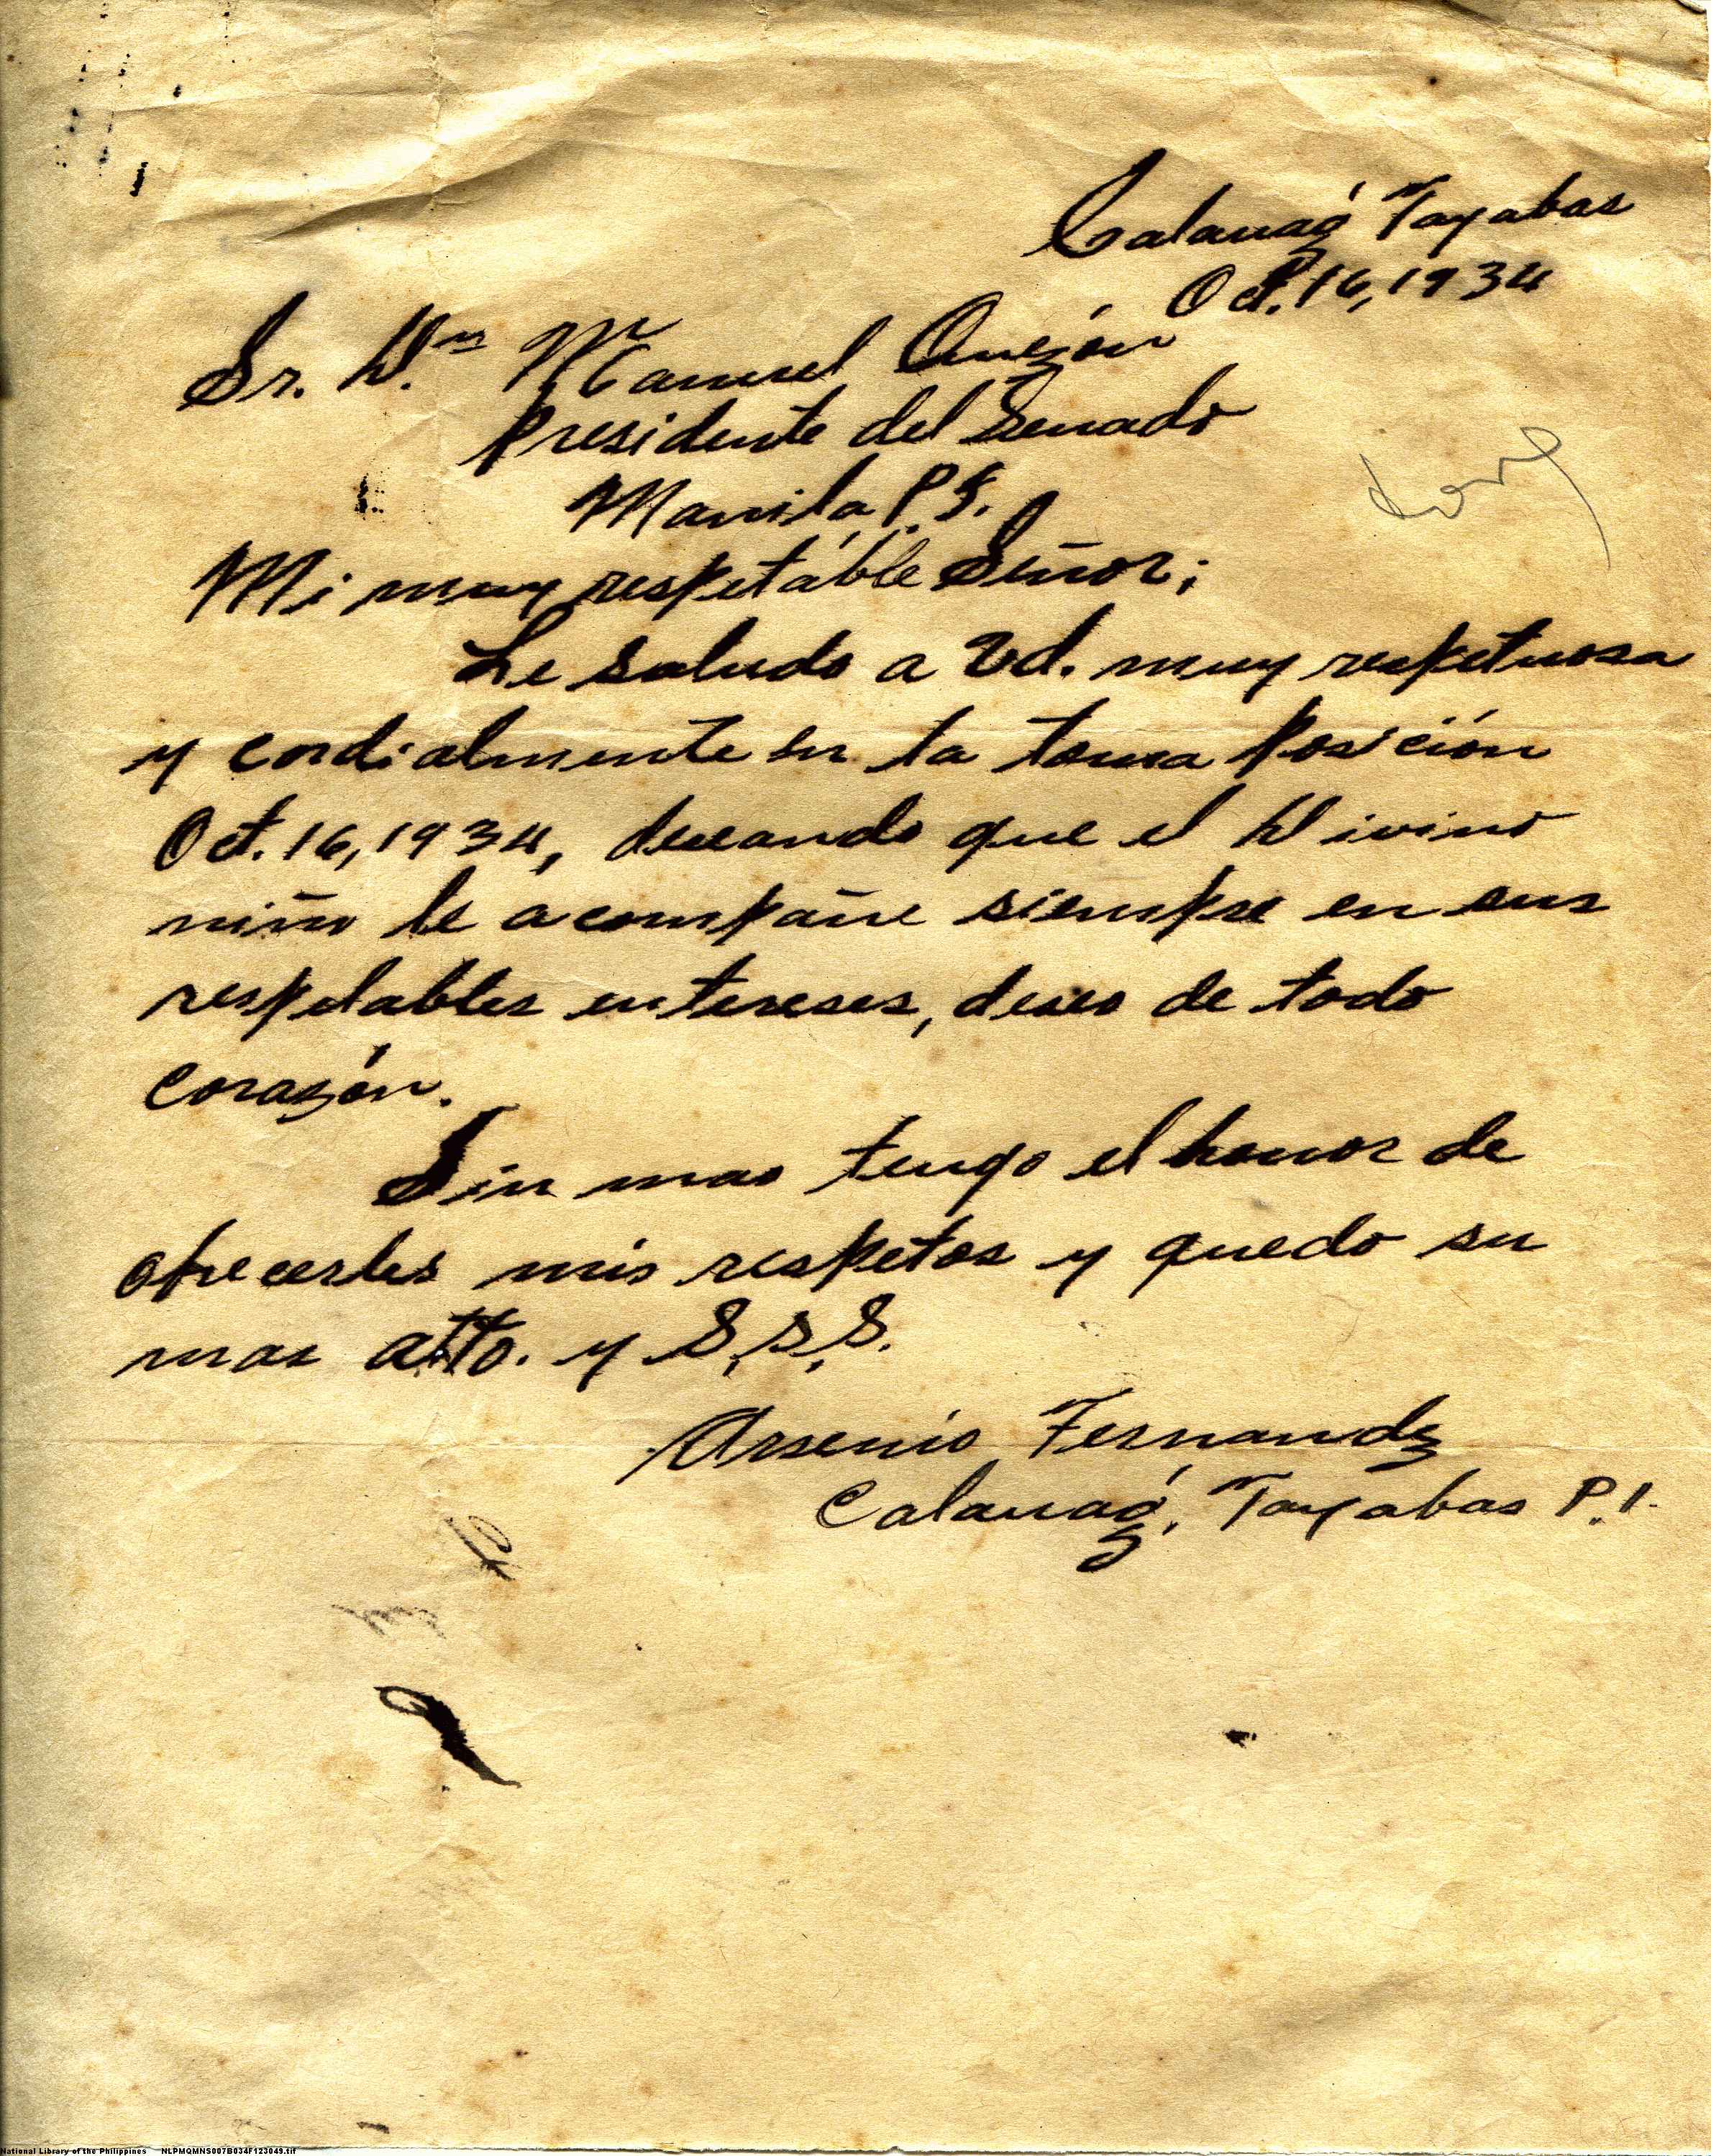 Calauag Tayabas
Oct. 16, 1934
Sr. Dn Manuel Quezón
Presidente del Senado
Manila P.I.
Mi muy respetable Señor;
Le saludo a Vd. muy respetuosa
y cordialmente en la toma posición
Oct. 16, 1934, deseando que el Divino
niño le acompañe siempre en sus
respetables intereses, deseo de todo
corazón.
Sin mas tengo el honor de
ofrecerles mis respetos y quedo su
mas atto. y S.S.S.
Arsenio Fernandez
Calauag, Tayabas P.I.
National Library of the Philippines NLPMQMNS007B034F123049.tif